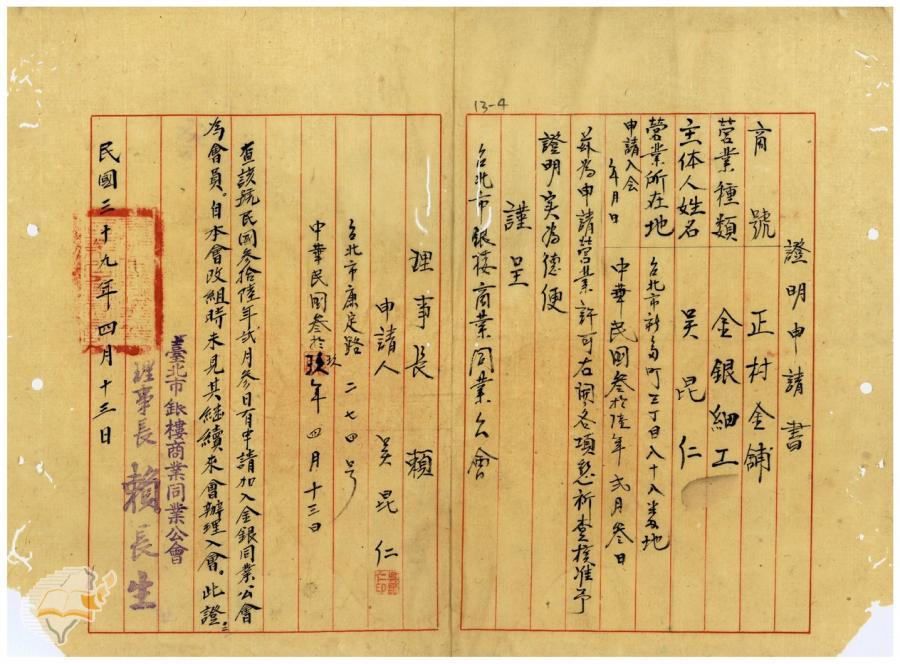 13-4
證明申請書
商號 正村金舖
營業種類 金銀細工
主体人姓名 吴昆仁
營業所在地 台北市新富町三丁目八十八番地
申請入会年月日 中華民國叁拾陸年弍月叁日
茲為申請營業許可右開各項懇祈查核准予
證明実為德便
謹呈
台北市銀樓商業同業公會
理事長 賴
申請人 吴昆仁
台北市康定路二七四号
中華民國叁拾玖年四月十三日
查該號民國參拾陸年弍月參日有申請加入金銀同業公會
為會員。自本會改組時未見其継續來會辦理入會。此證。
臺北市銀樓商業同業公會
理事長 賴長生
民國三十九年四月十三日